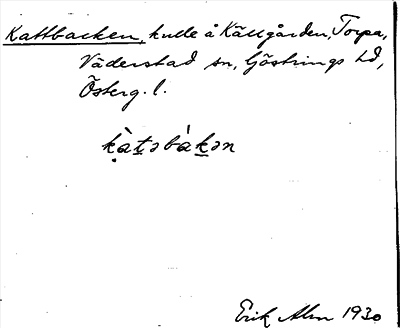 Kattbacken, kulle å Källgården, Torpa,
Väderstad sn, Göstrings hd,
Österg. l.
ḳàṯəbàḵən
Erik Alm 1930